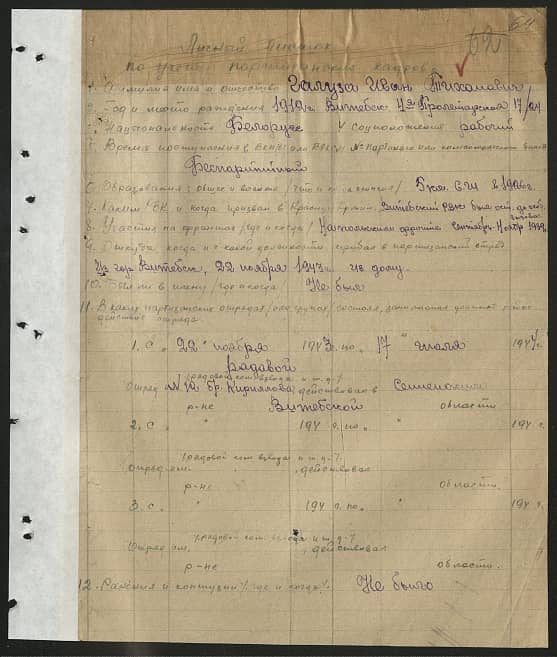 64
62
Личный листок
по учету партизанских кадров
1. Фамилия имя и отчество Галуза Иван Тихонович
2. Год и место рождения 1919 г. Витебск 4я Пролетарская 17/24
3. Национальность Белорус 4 соцположение рабочий
5. Время поступления в ВКП(б) или ВЛКСМ № партбилета или комсомольского билета
Беспартийный
6. Образование: общее и военное /что и когда окончил/ 5 кл. С.Ш в 1926 г.
7. Каким РВК и когда призван в Красную Армию. Витебский РВК
8. Участие на фронтах /где и когда/ сентябрь
9. Откуда, когда и с какой должности прибыл в партизанский отряд
Из гор Витебск, 22 ноября 1943 г. из дому.
10. Был ли в плену /где и когда/ Не был
11. В каких партизанских отрядах
действие отряда.
1. С „22" ноября 1943 г. по „17" 194 г.
рядовой
/рядовой ком взвода и т. д./
Отряд № 10 бр. Кириллова, действовал в
р-не Витебской области
2. С „ " 194 г. по „ " 194 г.
/рядовой ком взвода и т. д./
Отряд им. , действовал
р-не области.
3. С „ " 194 г. по „ " 194 г.
/рядовой ком. взвода и т. д./
Отряд им. , действовал
р-не области.
12. Ранения и контузии /где и когда/. Не было